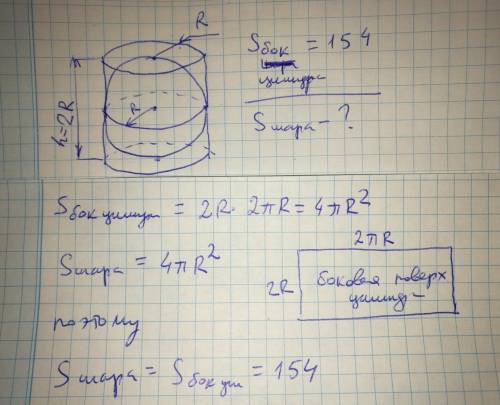 R
Sбок = 154
цилиндра
h=2R
R
Sшара - ?
Sбок цилин = 2R · 2πR = 4πR²
Sшара = 4πR²
2πR
2R
боковая поверх
цилинд
поэтому
Sшара = Sбок цил = 154